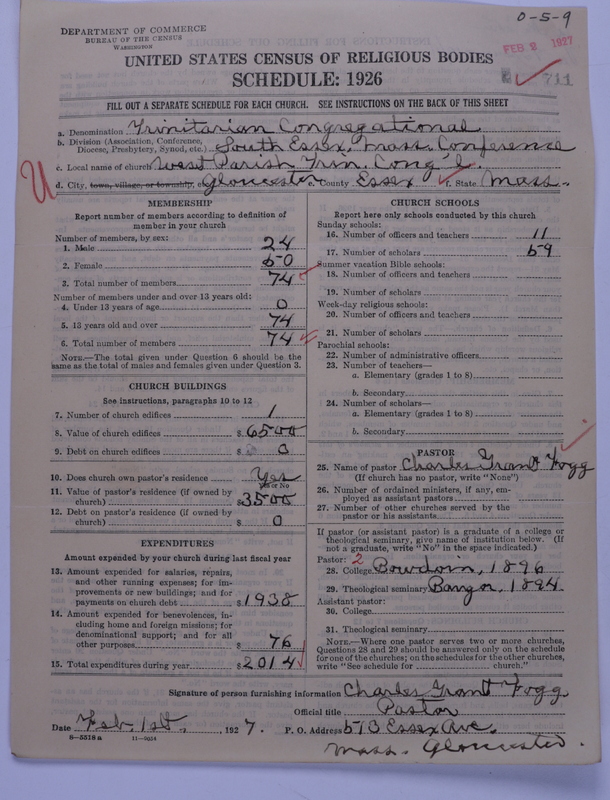 0-5-9
DEPARTMENT OF COMMERCE
BUREAU OF THE CENSUS
WASHINGTON
FEB 2 1927
711
UNITED STATES CENSUS OF RELIGIOUS BODIES
SCHEDULE: 1926
FILL OUT A SEPARATE SCHEDULE FOR EACH CHURCH. SEE INSTRUCTIONS ON THE BACK OF THIS SHEET
a. Denomination Trinitarian Congregational
b. Division (Association, Conference, Diocese, Presbytery, Synod, etc.) South Essex, Mass. Conference
c. Local name of church West Parish Trin. Cong'l.
U
d. City, town, village, or township, Gloucester e. County Essex f. State Mass.
MEMBERSHIP
Report number of members according to definition of
member in your church
Number of members, by sex:
1. Male 24
2. Female 50
3. Total number of members 74
Number of members under and over 13 years old:
4. Under 13 years of age 0
5. 13 years old and over 74
6. Total number of members 74
NOTE.—The total given under Question 6 should be the
same as the total of males and females given under Question 3.
CHURCH BUILDINGS
See instructions, paragraphs 10 to 12
7. Number of church edifices 1
8. Value of church edifices $ 6500
9. Debt on church edifices $ 0
10. Does church own pastor's residence Yes
Yes or No
11. Value of pastor's residence (if owned by
church) $ 3500
12. Debt on pastor's residence (if owned by
church) $ 0
EXPENDITURES
Amount expended by your church during last fiscal year
13. Amount expended for salaries, repairs,
and other running expenses; for im-
provements or new buildings; and for
payments on church debt $ 1938
14. Amount expended for benevolences, in-
cluding home and foreign missions; for
denominational support; and for all
other purposes $ 76
15. Total expenditures during year $ 2014
CHURCH SCHOOLS
Report here only schools conducted by this church
Sunday schools:
16. Number of officers and teachers 11
17. Number of scholars 59
Summer vacation Bible schools:
18. Number of officers and teachers
19. Number of scholars
Week-day religious schools:
20. Number of officers and teachers
21. Number of scholars
Parochial schools:
22. Number of administrative officers
23. Number of teachers—
a. Elementary (grades 1 to 8)
b. Secondary
24. Number of scholars—
a. Elementary (grades 1 to 8)
b. Secondary
PASTOR
25. Name of pastor Charles Grant Fogg
(If church has no pastor, write "None")
26. Number of ordained ministers, if any, em-
ployed as assistant pastors
27. Number of other churches served by the
pastor or his assistants
If pastor (or assistant pastor) is a graduate of a college or
theological seminary, give name of institution below. (If
not a graduate, write "No" in the space indicated.)
Pastor: 2
28. College Bowdoin, 1896
29. Theological seminary Bangor, 1894
Assistant pastor:
30. College
31. Theological seminary
NOTE.—Where one pastor serves two or more churches,
Questions 28 and 29 should be answered only on the schedule
for one of the churches; on the schedules for the other churches,
write "See schedule for church."
Signature of person furnishing information Charles Grant Fogg
Official title Pastor
Date Feb. 1st, 1927. P. O. Address 573 Essex Ave.
8-5518a 11-9034
Mass. Gloucester.